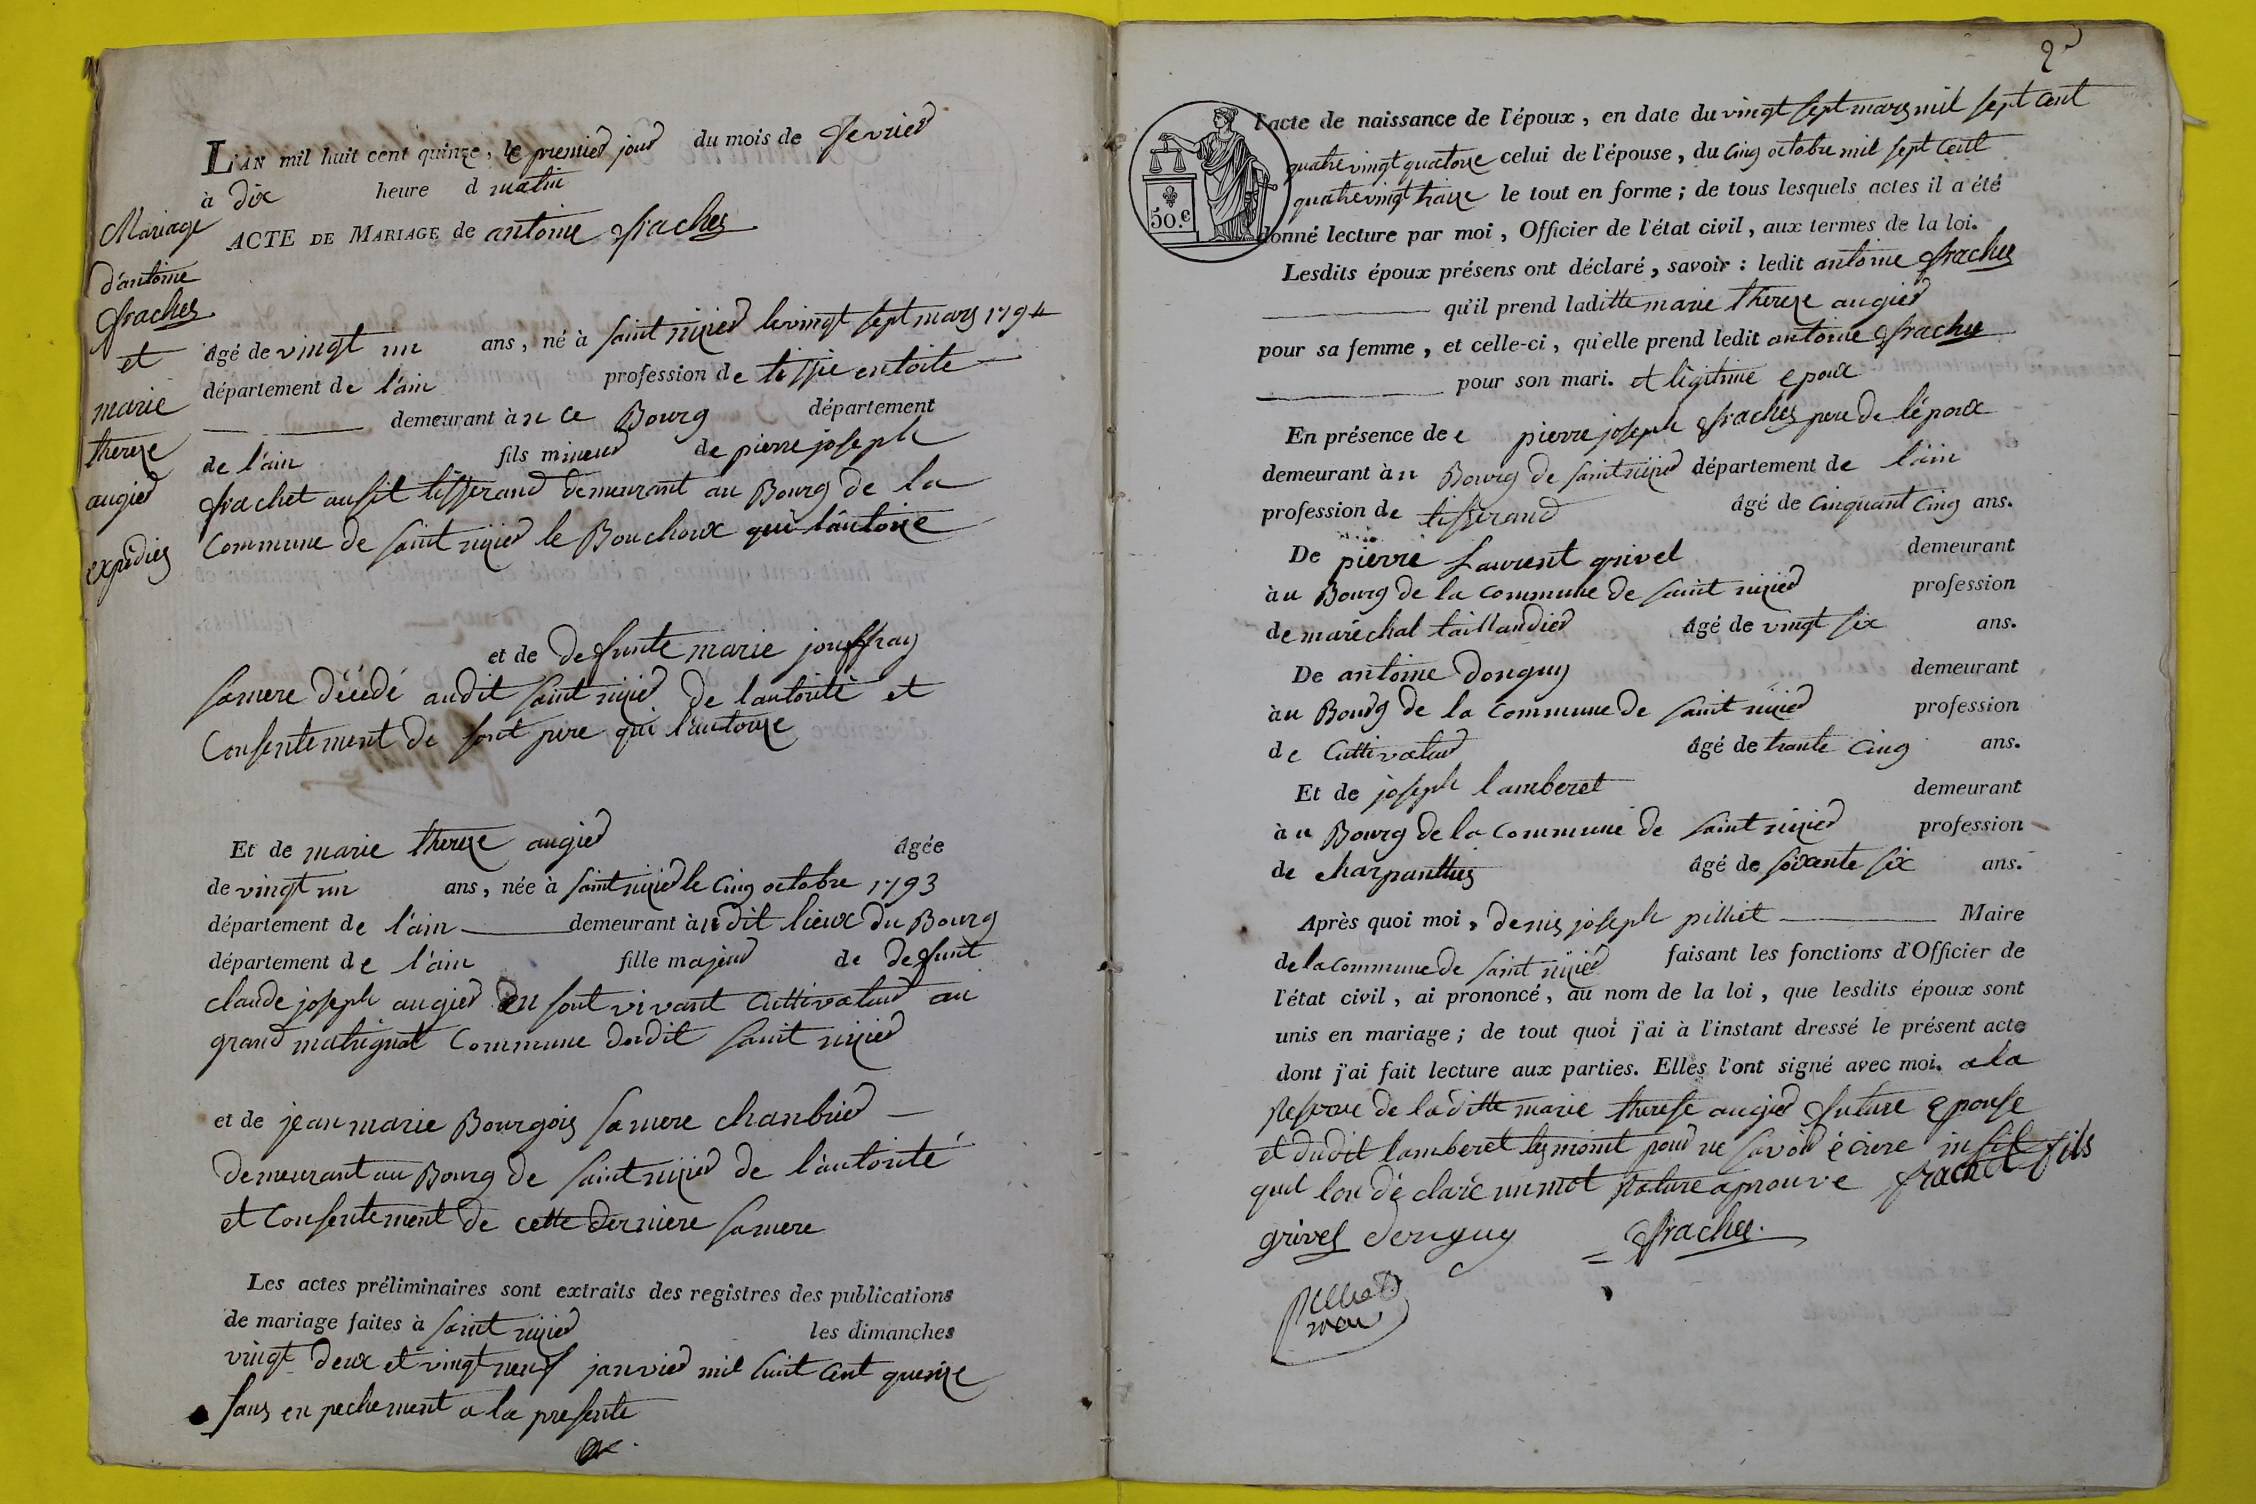 L'AN mil huit cent quinze, le premier jour du mois de fevrier
à dix heure d matin
ACTE DE MARIAGE de antoine frachet
Mariage
d'antoine
frachet
et
marie
thereze
augier
expédiés
âgé de vingt un ans, né à saint nizier le vingt sept mars 1794
département de l'ain profession de tissie en toile
demeurant à u ce Bourg département
de l'ain fils mineur de pierre joseph
frachet ausit tisserand demeurant au Bourg de la
Commune de saint nizier le Bouchoux qui l'autorize
et de defunte marie jouffray
samere décédé audit saint nizier de lautorité et
Consentement de sont pere qui l'autorize
Et de marie thereze augier âgée
de vingt un ans, née à saint nizier le cinq octobre 1793
département de l'ain demeurant à udit lieux du Bourg
département de l'ain fille majeur de defunt
claude joseph augier en sont vivant Cultivateur au
grand matrignat Commune dudit saint nizier
et de jean marie Bourgois samere chanbrier
demeurant au Bourg de saint nizier de l'autorité
et Consentement de cette derniere samere
Les actes préliminaires sont extraits des registres des publications
de mariage faites à saint nizier les dimanches
vingt deux et vingt neuf janvier mil huit cent quinze
sans en pechement a la presente
2
50.c
l'acte de naissance de l'époux, en date du vingt sept mars mil sept cent
quatre vingt quatorze celui de l'épouse, du cinq octobre mil sept cent
quatre vingt traize le tout en forme; de tous lesquels actes il a été
donné lecture par moi, Officier de l'état civil, aux termes de la loi.
Lesdits époux présens ont déclaré, savoir: ledit antoine frachet
qu'il prend laditte marie thereze augier
pour sa femme, et celle-ci, qu'elle prend ledit antoine frachet
pour son mari. et légitime epoux
En présence de e pierre joseph frachet pere de lépoux
demeurant à u Bourg de saint nizier département de l'ain
profession de tisserand âgé de cinquant cinq ans.
De pierre Laurent grivel demeurant
à u Bourg de la Commune de saint nizier profession
de maréchal taillandier âgé de vingt six ans.
De antoine donguy demeurant
à u Bourg de la Commune de saint nizier profession
de Cultivateur âgé de trante cinq ans.
Et de joseph lamberet demeurant
à u Bourg de la Commune de saint nizier profession
de charpanthier âgé de soixante six ans.
Après quoi moi, denis joseph pilliet Maire
de la commune de saint nizier faisant les fonctions d'Officier de
l'état civil, ai prononcé, au nom de la loi, que lesdits époux sont
unis en mariage; de tout quoi j'ai à l'instant dressé le présent acte
dont j'ai fait lecture aux parties. Elles l'ont signé avec moi. a la
Reserve de laditte marie therese augier future epouse
et dudit lamberet temoint pour ne savoir écrere
quil lon déclaré un mot Rature aprouve frachet fils
grivel donguy frachet.